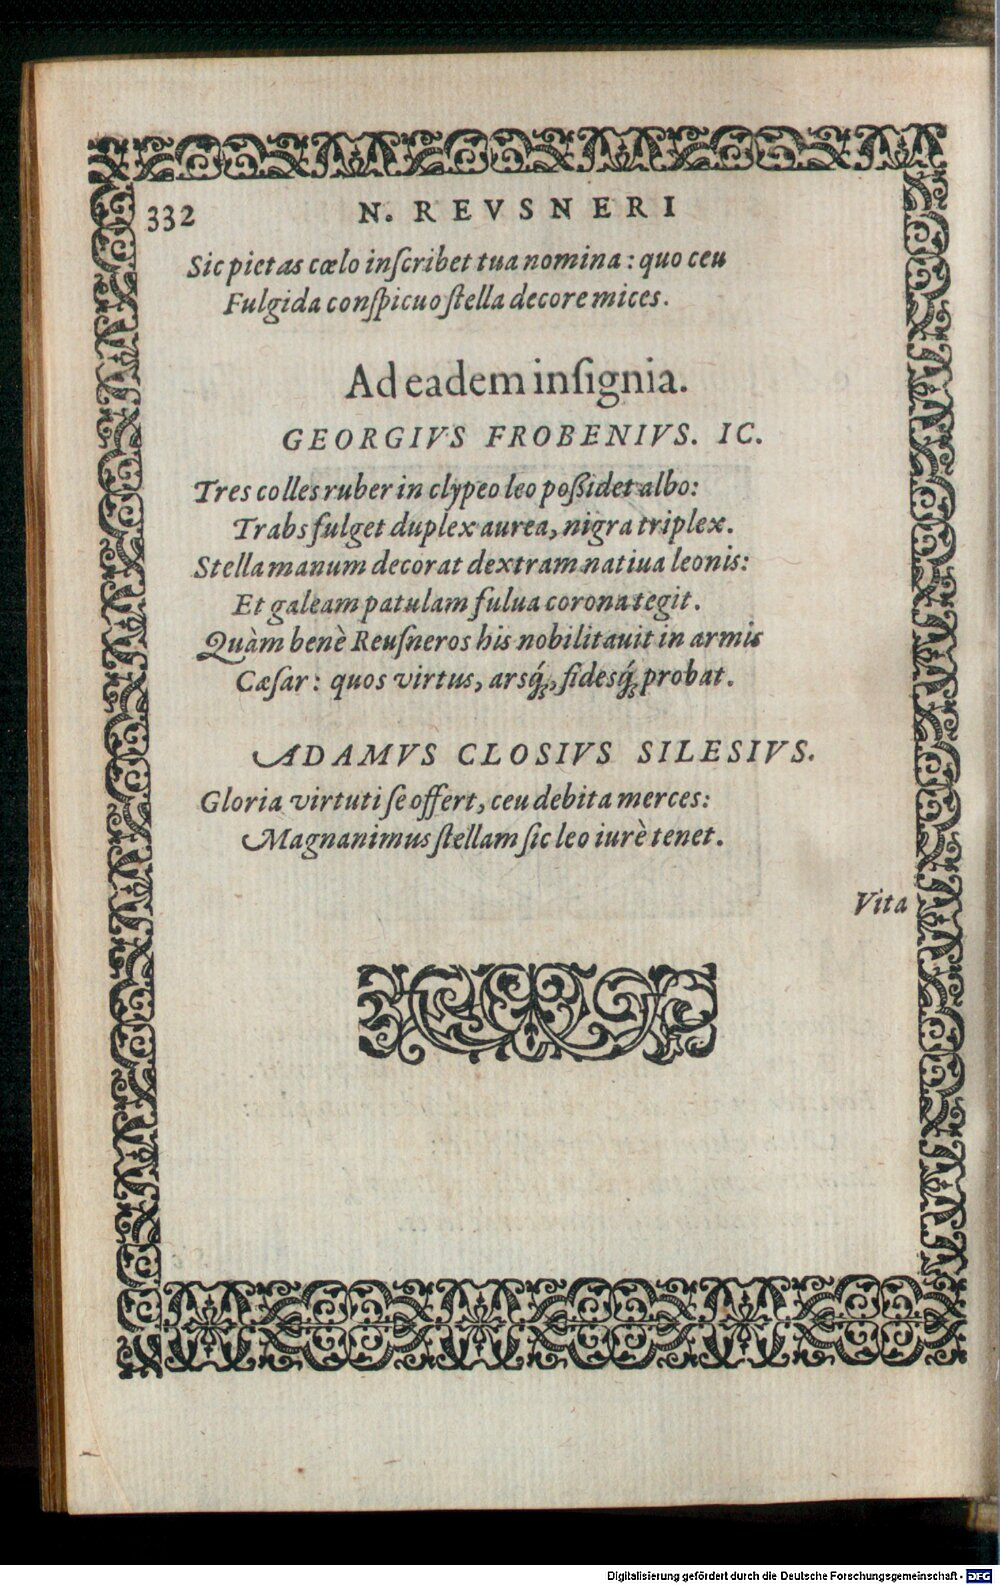 332
N. REVSNERI
Sic pietas cœlo inſcribet tua nomina: quo ceu
Fulgida conſpicuo ſtella decore mices.
Ad eadem inſignia.
GEORGIVS FROBENIVS. IC.
Tres colles ruber in clypeo leo poßidet albo:
Trabs fulget duplex aurea, nigra triplex.
Stella manum decorat dextram natiua leonis:
Et galeam patulam fulua corona tegit.
Quàm benè Reuſneros his nobilitauit in armis
Cæſar: quos virtus, arsq́;, fidesq́; probat.
ADAMVS CLOSIVS SILESIVS.
Gloria virtuti ſe offert, ceu debita merces:
Magnanimus ſtellam ſic leo iurè tenet.
Vita
Digitalisierung gefördert durch die Deutsche Forschungsgemeinschaft - DFG